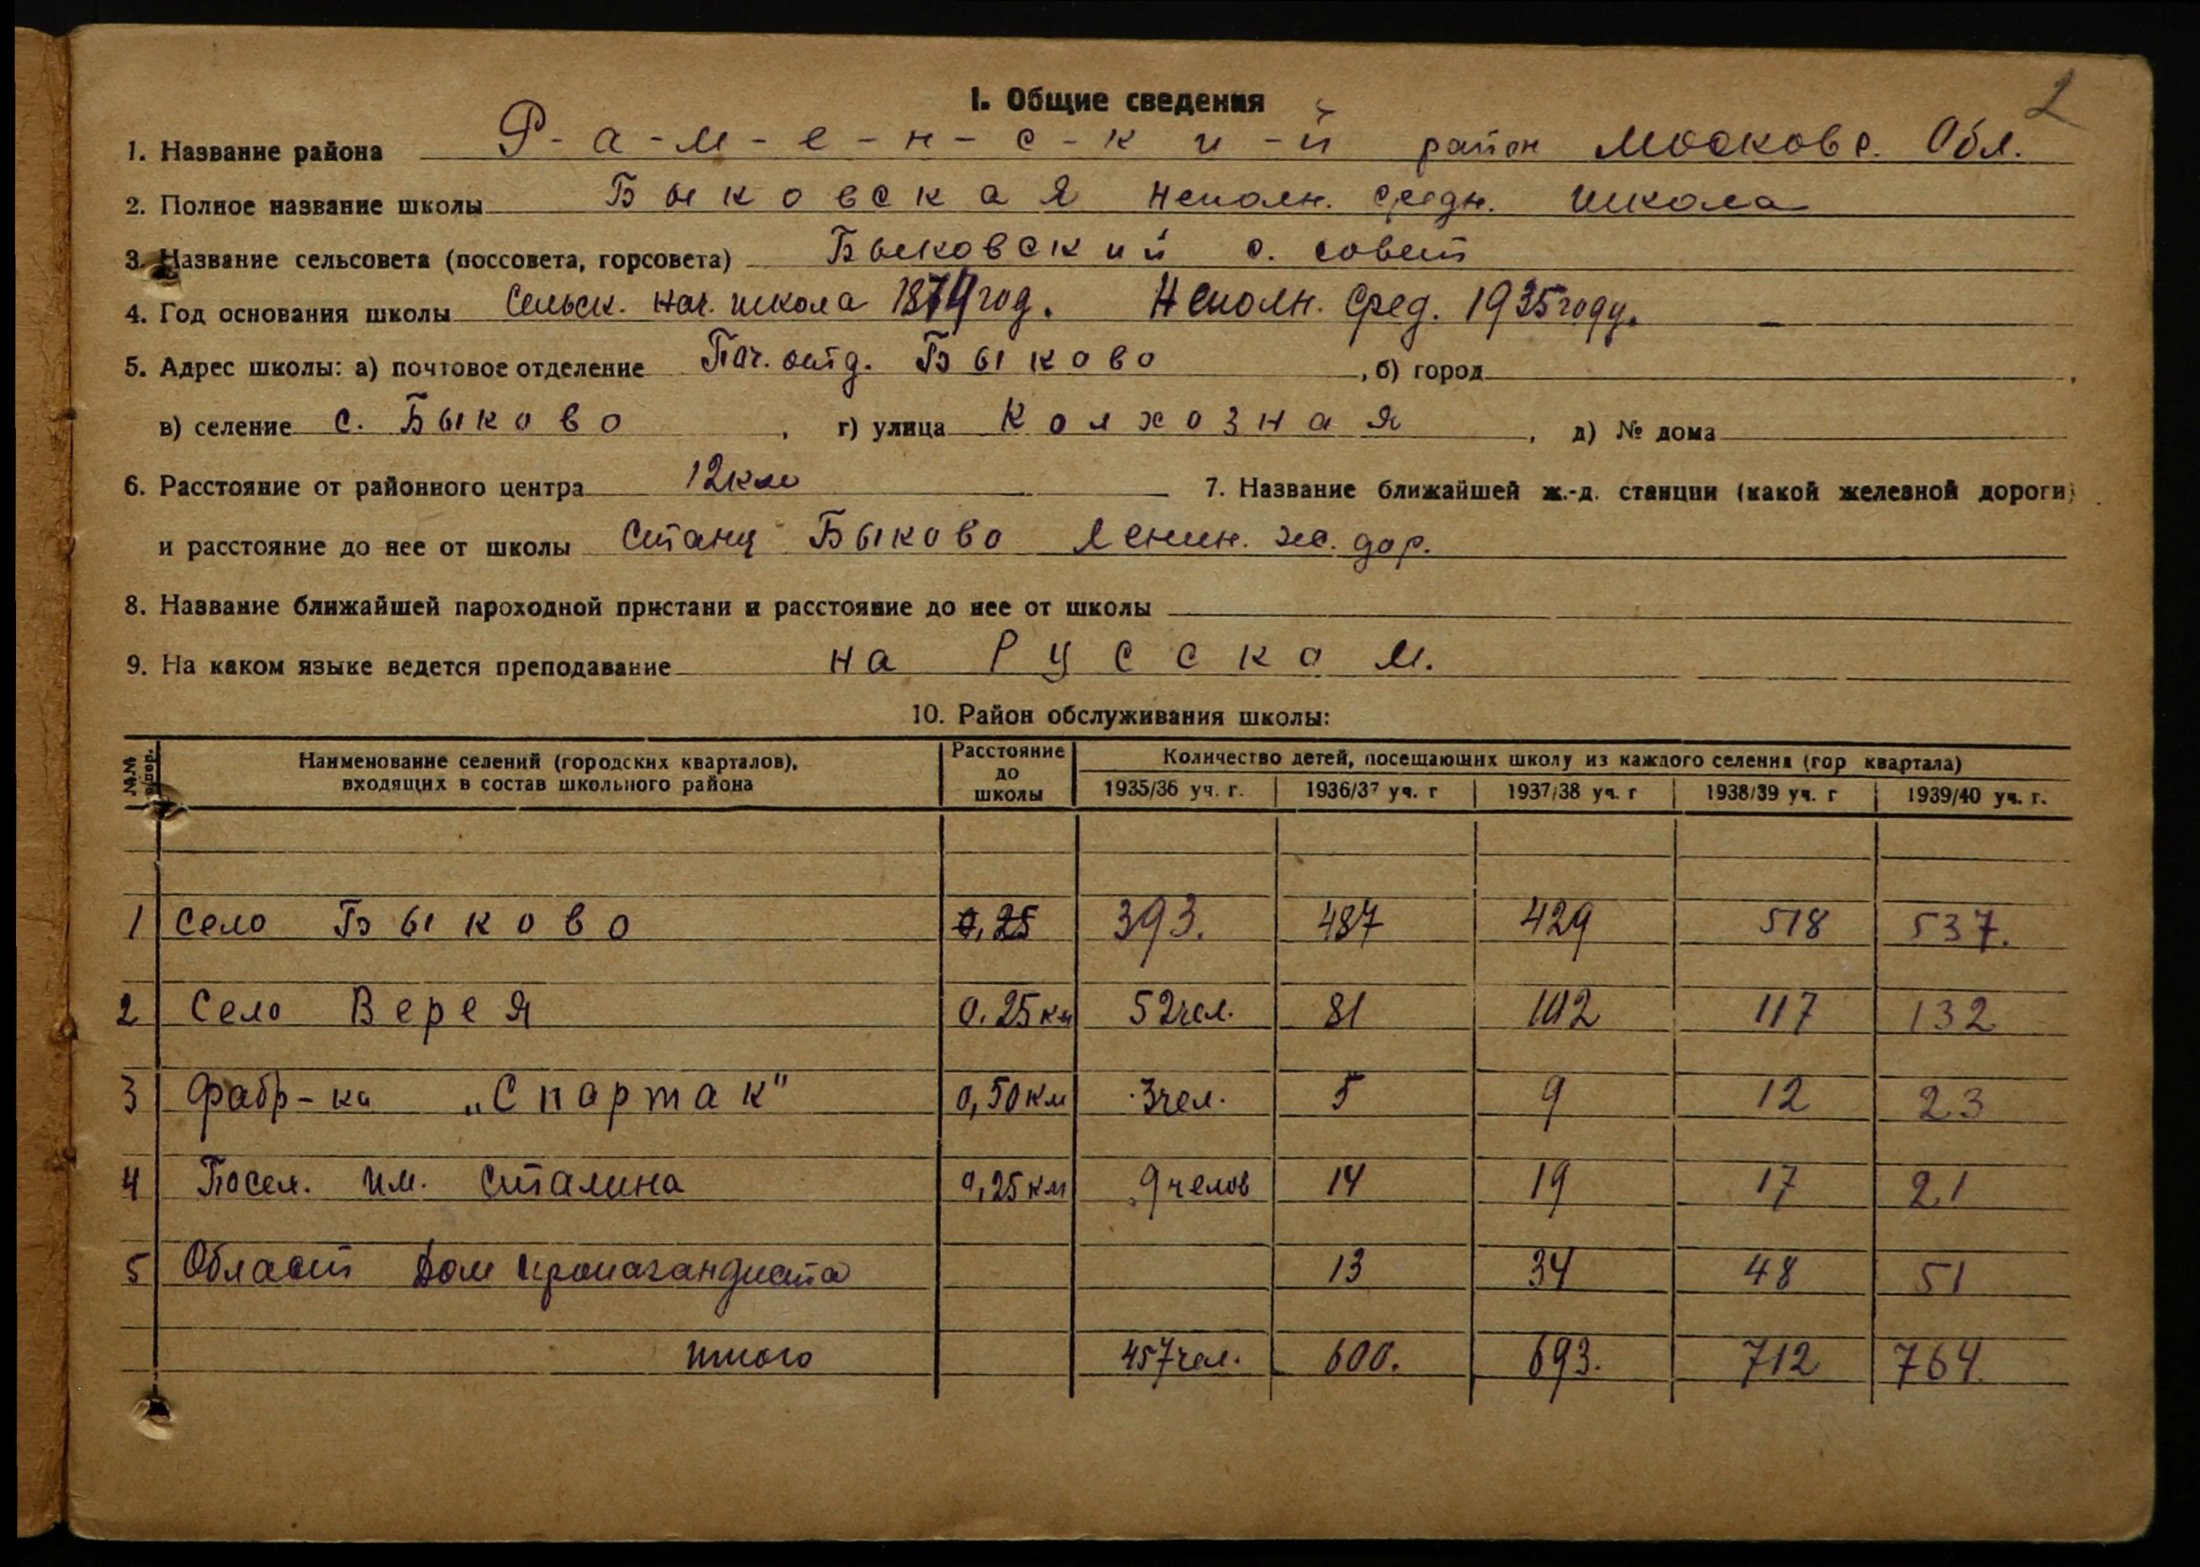 2
I. Общие сведения
1. Название района Р-а-м-е-н-с-к и-й район Московс. Обл.
2. Полное название школы Быковская Неполн. средн. школа
3. Название сельсовета (поссовета, горсовета) Быковский с. совет
4. Год основания школы Сельск. нач. школа 1874 год. Неполн. Сред. 1935 году.
5. Адрес школы: а) почтовое отделение Поч. отд. Быково, б) город ,
в) селение с. Быково, г) улица Колхозная, д) № дома
6. Расстояние от районного центра 12 км 7. Название ближайшей ж.-д. станции (какой железной дороги)
и расстояние до нее от школы Станц Быково Ленин. ж. дор.
8. Название ближайшей пароходной пристани и расстояние до нее от школы
9. На каком языке ведется преподавание на Русском.
10. Район обслуживания школы:
№№ п/пор. Наименование селений (городских кварталов), входящих в состав школьного района Расстояние до школы Количество детей, посещающих школу из каждого селения (гор квартала)
1935/36 уч. г. 1936/37 уч. г 1937/38 уч. г 1938/39 уч. г 1939/40 уч. г.
1 Село Быково 0,25 393. 487 429 518 537.
2 Село Верея 0.25 км 52 чел. 81 102 117 132
3 Фабр-ка „Спартак" 0,50 км 3 чел. 5 9 12 23
4 Посел. им. Сталина 0,25 км 9 челов 14 19 17 21
5 Област Дом пропагандиста 13 34 48 51
итого 457 чел. 600. 693. 712 764.